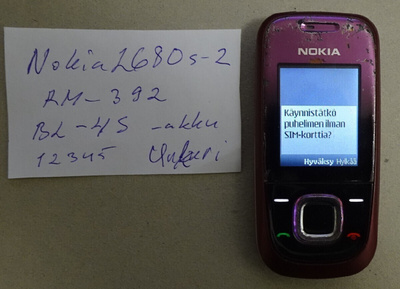 Nokia 2680s-2
RM-392
BL-4S -akku
12345
NOKIA
Käynnistätkö
puhelimen ilman
SIM-korttia?
Hyväksy Hylkää